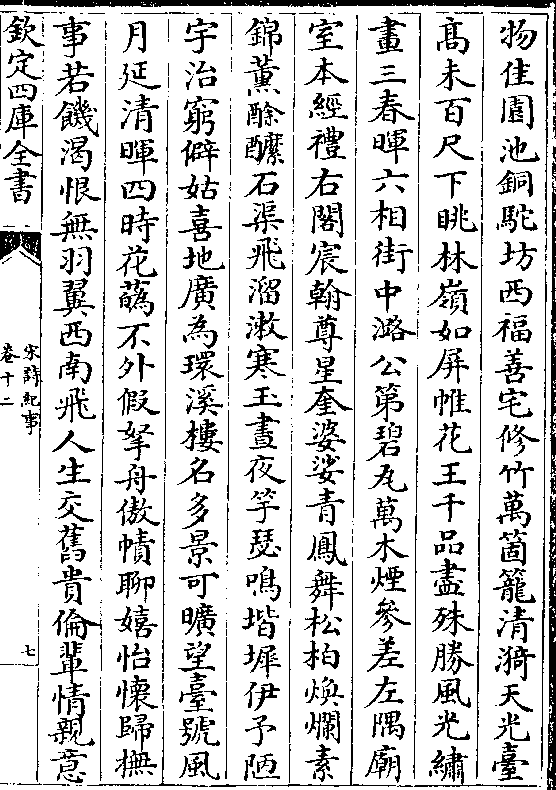 物佳園池銅駝坊西福善宅修竹萬箇籠清漪天光臺
髙未百尺下眺林嶺如屏帷花王千品盡殊勝風光繡
畫三春暉六相街中潞公第碧瓦萬木煙參差左隅廟
室本經禮右閣宸翰尊星奎婆娑青鳳舞松柏煥爛素
錦薰酴醿石渠飛溜漱寒玉晝夜竽瑟鳴堦墀伊予陋
宇治窮僻姑喜地廣為環溪樓名多景可曠望臺號風
月延清暉四時花蘤不外假拏舟傲幘聊嬉怡懷歸撫
事若饑渴恨無羽翼西南飛人生交舊貴倫輩情親意
欽定四庫全書
宋詩紀事
卷十二
七